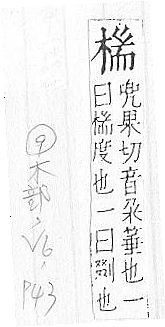 椯
兜果切音朶菙也一
曰椯度也一曰剟也
⑨木部,V6,P43